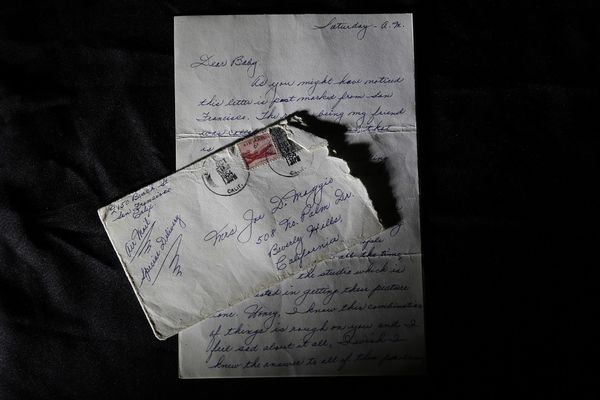 Saturday - A.M.
Dear Baby
As you might have noticed
this letter is post marked from San
Francisco. The being my friend
was
is
2150 Beach St.
San Francisco
Calif.
Air Mail
Special Delivery
CALIF.
Mrs Joe Di Maggio
508 No. Palm Dr.
Beverly Hills,
California
all the time,
the studio which is
in getting their picture
done. Honey, I know this combination
of things is rough on you and I
feel sad about it all. I wish I
knew the answer to all of this